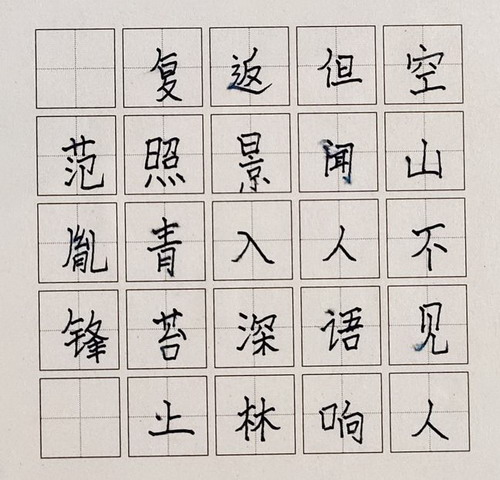 空山不见人
但闻人语响
返景入深林
复照青苔止
范胤锋